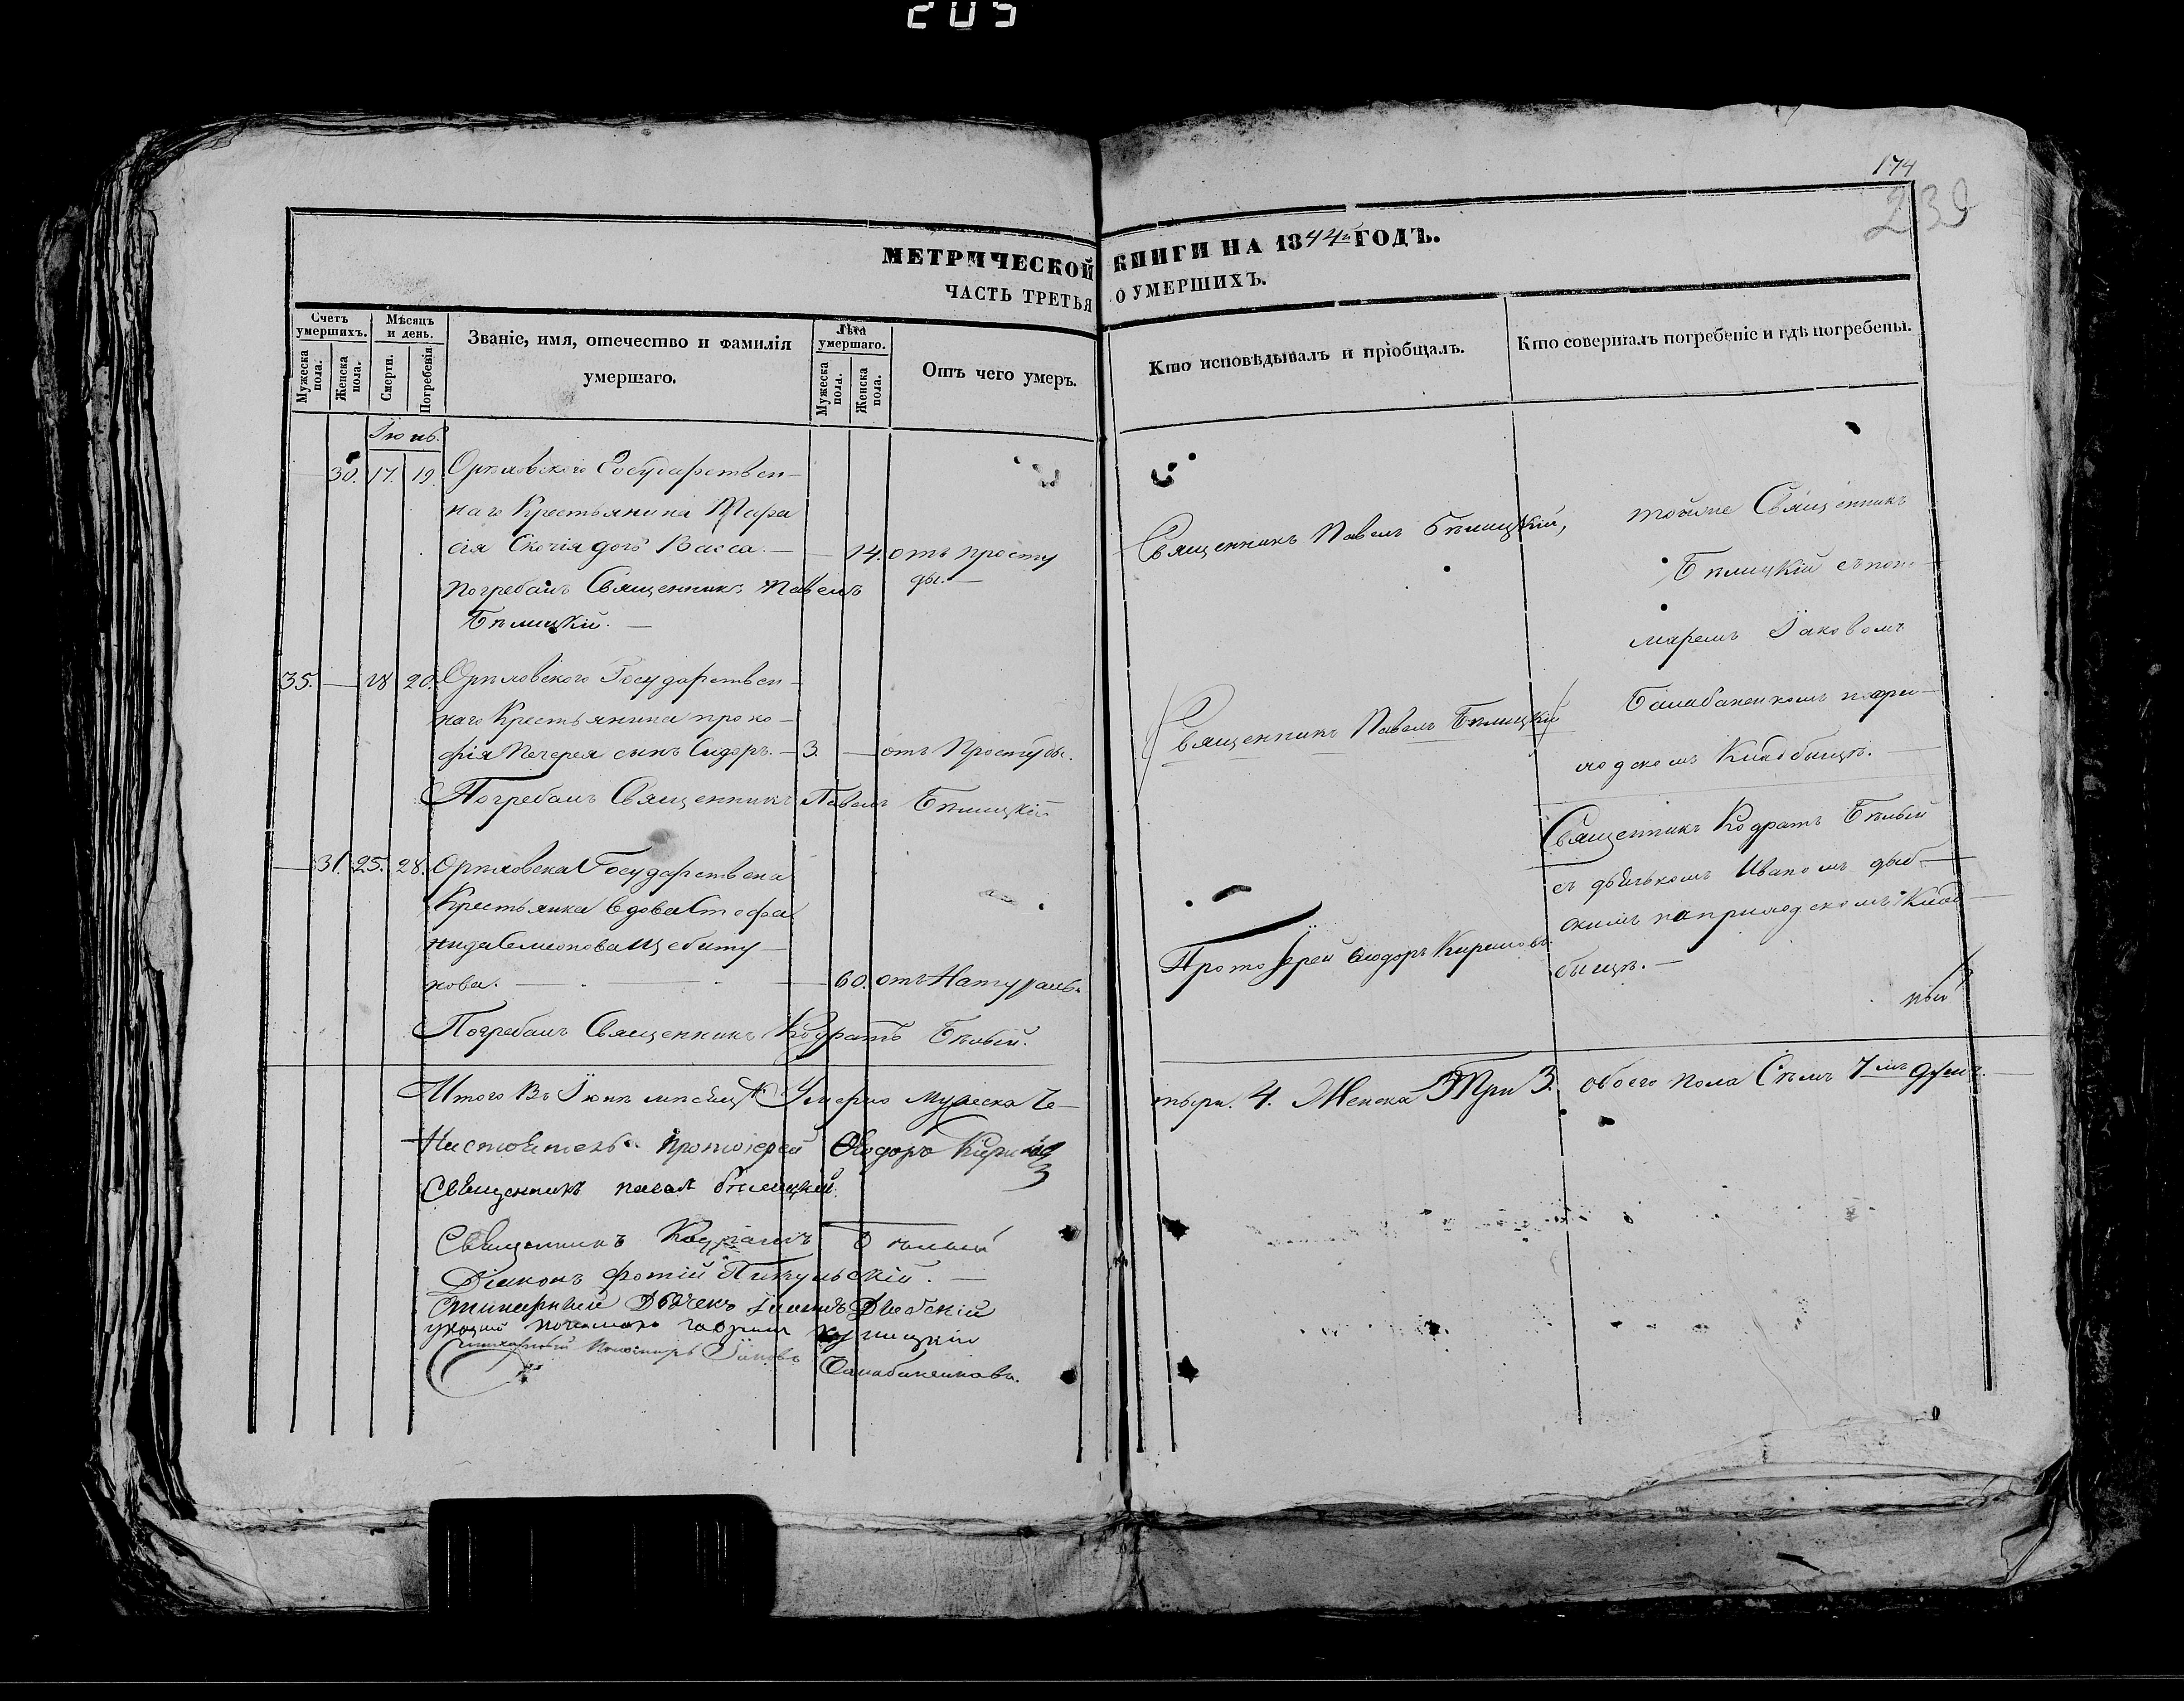 205
174
239
МЕТРИЧЕСКОЙ КНИГИ НА 1844й ГОДЪ.
ЧАСТЬ ТРЕТЬЯ О УМЕРШИХЪ.
Счетъ умершихъ.
Мужеска пола.
Женска пола.
Мѣсяцъ и день.
Смерти.
Погребенія.
Званіе, имя, отечество и фамилія
умершаго.
Лѣта умершаго.
Мужеска пола.
Женска пола.
Отъ чего умеръ.
Кто исповѣдывалъ и пріобщалъ.
Кто совершалъ погребеніе и гдѣ погребены.
Іюнь.
30. 17. 19. Орѣховского Государствен-
наго Крестьянина Тара
сія дочь Васса. — 14. отъ просту
ды. —
Погребалъ Священникъ Павелъ
Бѣлицкій. —
Священникъ Павелъ Бѣлицкій,
тотже Священникъ
Бѣлицкій съ поно-
маремъ Іаковомъ
Балабаненкомъ на при-
ходскомъ Кладбищѣ. —
35. — 18 20. Орѣховского Государствен-
наго Крестьянина Проко-
фія Печерея сынъ Сидоръ. — 3. — отъ Простуды.
Погребалъ Священникъ Павелъ Бѣлицкій
Священникъ Павелъ Бѣлицкій
— 31. 25. 28. Орѣховска Государствена
Крестьянка вдова Стефа
нида Семіонова Щебиту-
нова. — 60. отъ Натураль.
ной
Погребалъ Священникъ Кодратъ Бѣлый.
Протоіерей Ѳеодоръ Кириловъ.
Священникъ Кодратъ Бѣлый
съ дьячкомъ Иваномъ Дыб-
скимъ на приходскомъ Клад-
бищѣ. —
Итого въ Іюнѣ мѣсяцѣ Умерло мужеска Че-
тыри. 4. Женска Три 3. обоего пола Семь 7мь душъ. —
Настоятель Протоіерей Ѳеодоръ
Священникъ Павелъ Бѣлицкій.
Священникъ Кодратъ Бѣлый
Діаконъ Фотій Пикульскій. —
Балабаненковъ.